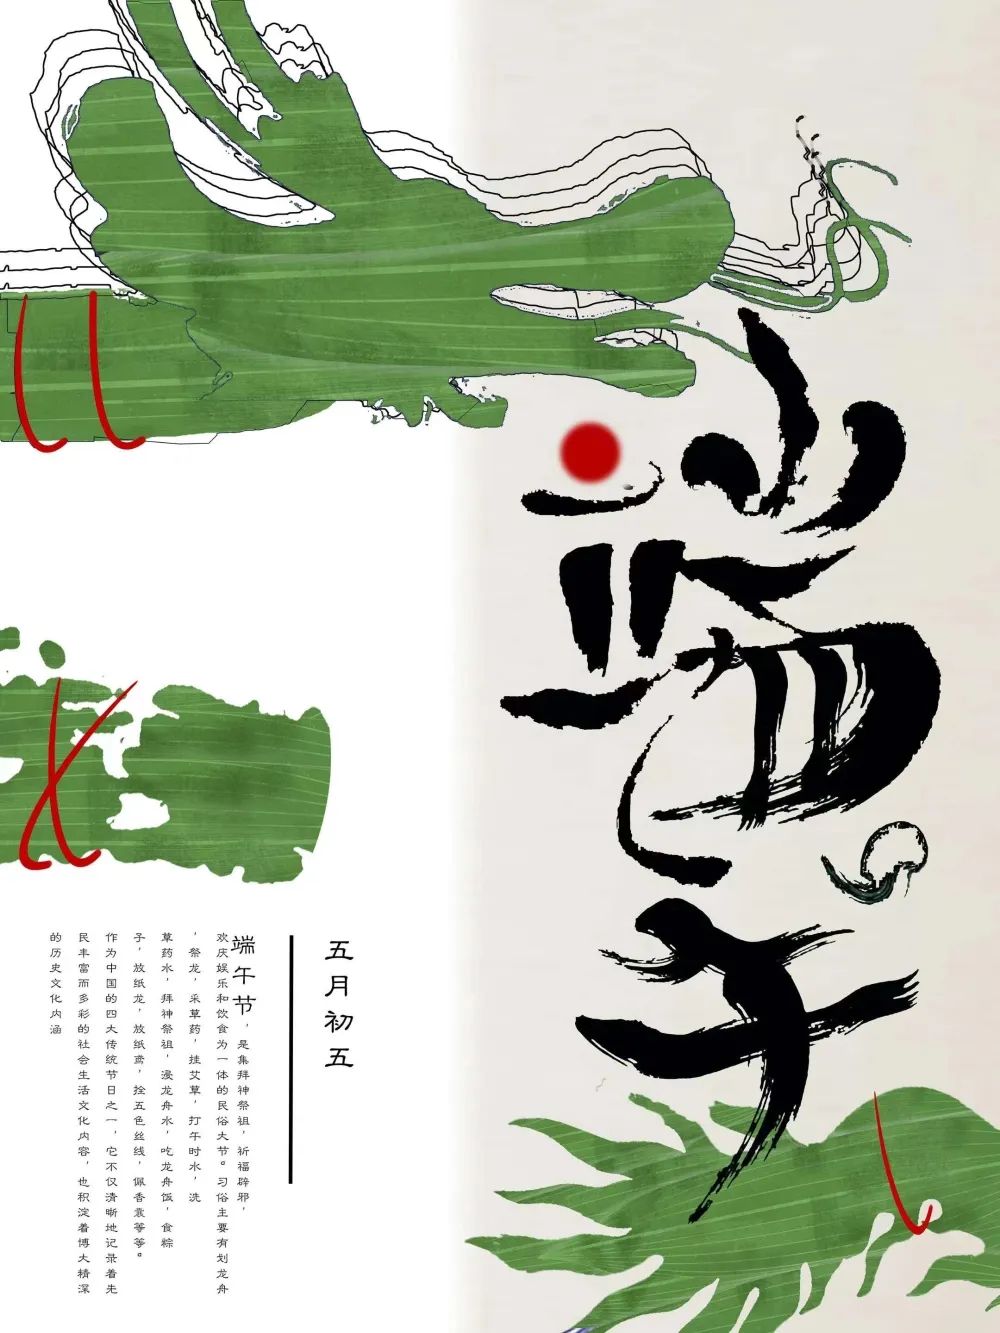 端午
五月初五
端午节，是集拜神祭祖，祈福辟邪，
欢庆娱乐和饮食为一体的民俗大节。习俗主要有划龙舟
，祭龙，采草药，挂艾草，打午时水，洗
草药水，拜神祭祖，浸龙舟水，吃龙舟饭，食粽
子，放纸龙，放纸鸢，拴五色丝线，佩香囊等等。
作为中国的四大传统节日之一，它不仅清晰地记录着先
民丰富而多彩的社会生活文化内容，也积淀着博大精深
的历史文化内涵